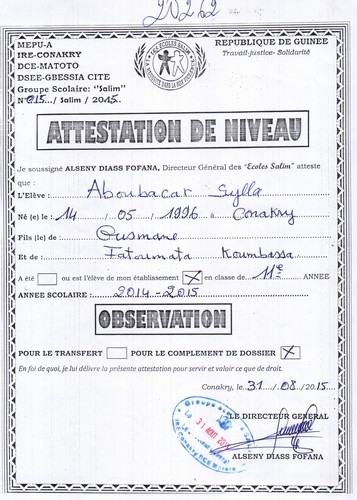 20262
MEPU-A
IRE-CONAKRY
DCE-MATOTO
DSEE-GBESSIA CITE
Groupe Scolaire: "Salim"
N°015.../ Salim / 2015.
LES ECOLES SALIM
REPUBLIQUE DE GUINEE
Travail-Justice- Solidarité
ATTESTATION DE NIVEAU
Je soussigné ALSENY DIASS FOFANA, Directeur Général des "Ecoles Salim" atteste
que :
L'Elève : Aboubacar Sylla
Né (e) le : 14 / 05 / 1996 à Conakry
Fils (le) de : Ousmane
Et de : Fatoumata Koumbassa
A été ou est l'élève de mon établissement X en classe de 11e ANNEE
ANNEE SCOLAIRE : 2014-2015
OBSERVATION
POUR LE TRANSFERT POUR LE COMPLEMENT DE DOSSIER X
En foi de quoi, je lui délivre la présente attestation pour servir et valoir ce que de droit.
Conakry, le 31 / 08 /2015
LE DIRECTEUR GENERAL
31 AOUT
ALSENY DIASS FOFANA